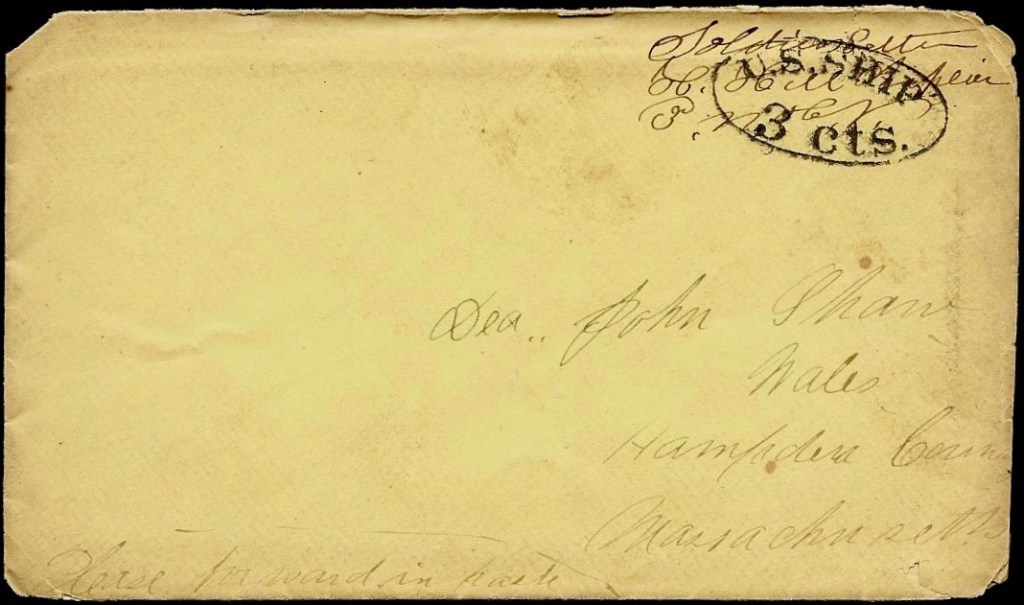 Soldiers Letter
H. Hill
P.
U.S. SHIP
3 cts.
Dea. John Shaw
Wales
Hampden Coun
Massachusetts
Please forward in haste